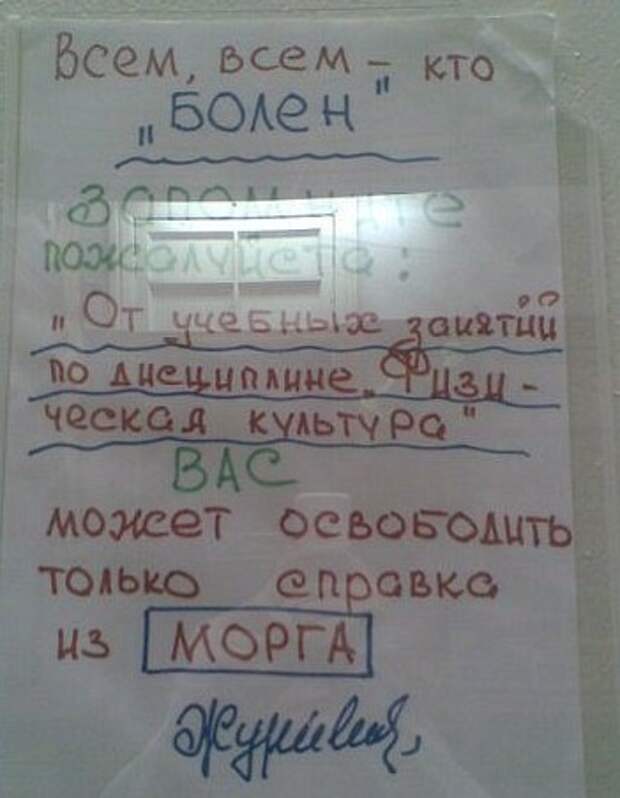 Всем, всем – кто
„БОЛЕН"
Запомните
пожалуйста:
„От учебных занятий
по дисциплине „Физи-
ческая культура"
ВАС
может освободить
только справка
из МОРГА